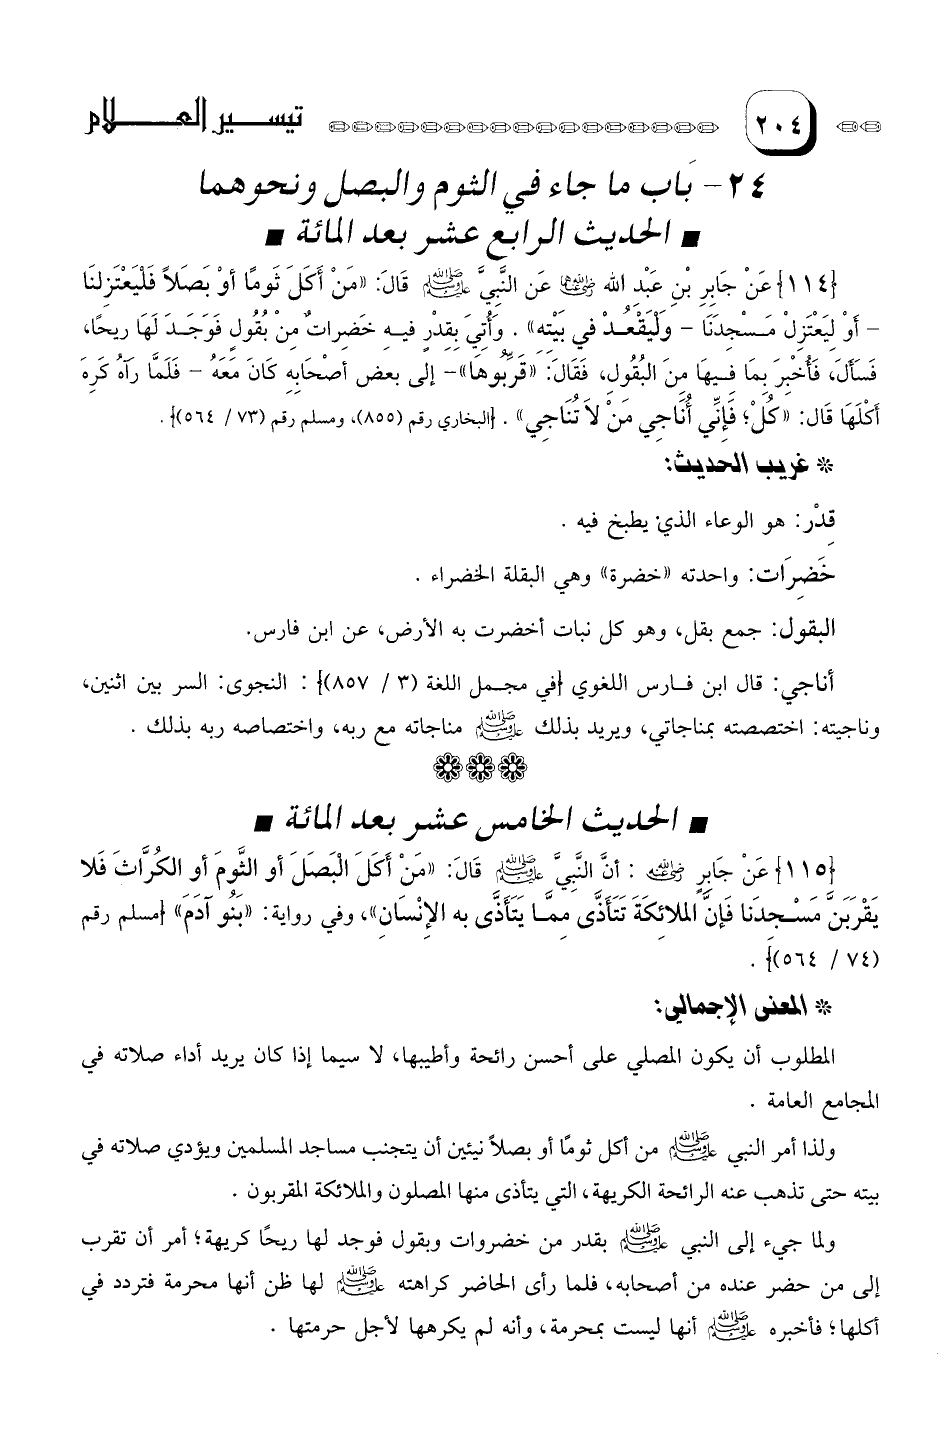 ٢٠٤ تيسير العلام
٢٤ - بَاب ما جاء في الثوم والبصل ونحوهما
■ الحديث الرابع عشر بعد المائة ■
{١١٤} عَنْ جَابِرِ بْنِ عَبْدِ الله رضي الله عنهما عَنِ النَّبِيِّ ﷺ قَالَ: «مَنْ أَكَلَ ثُومًا أوْ بَصَلاً فَلْيَعْتَزِلنَا
- أَوْ لِيَعْتَزِلْ مَسْجدَنَا - وَلْيَقْعُدْ في بَيْتِه» . وَأُتِيَ بِقِدْرٍ فيه خَضِرَاتٌ مِنْ بُقُولٍ فَوَجَدَ لَهَا رِيحًا،
فَسَأَلَ، فَأُخْبِرَ بِمَا فِيهَا مِنَ البُقُولِ، فَقَالَ: «قَرِّبُوهَا»- إلى بعض أصْحَابِه كَانَ مَعَهُ - فَلَمَّا رَآهُ كَرِهَ
أكْلَهَا قَالَ: «كُلْ؛ فَإنِّي أُنَاجِي مَنْ لاَ تُنَاجِي» . {البخاري رقم (٨٥٥)، ومسلم رقم (٧٣ / ٥٦٤)}.
* غريب الحديث:
قِدْر: هو الوعاء الذي يطبخ فيه .
خَضِرَات: واحدته «خضرة» وهي البقلة الخضراء .
البقول: جمع بقل، وهو كل نبات أخضرت به الأرض، عن ابن فارس.
أناجي: قال ابن فارس اللغوي {في مجمل اللغة (٣ / ٨٥٧)} : النجوى: السر بين اثنين،
وناجيته: اختصصته بمناجاتي، ويريد بذلك ﷺ مناجاته مع ربه، واختصاصه ربه بذلك .
■ الحديث الخامس عشر بعد المائة ■
{١١٥} عَنْ جَابِرٍ رضي الله عنه : أنَّ النَّبِيَّ ﷺ قَالَ: «مَنْ أَكَلَ الْبَصَلَ أو الثُّومَ أو الكُرَّاثَ فَلا
يَقْرَبَنَّ مَسْجِدَنا فَإنَّ الملائكَةَ تَتَأَذَّى مِمَّا يَتَأَذَّى به الإنْسَان»، وفي رواية: «بَنُو آدَمَ» {مسلم رقم
(٧٤ / ٥٦٤)} .
* المعنى الإجمالي:
المطلوب أن يكون المصلي على أحسن رائحة وأطيبها، لا سيما إذا كان يريد أداء صلاته في
المجامع العامة .
ولذا أمر النبي ﷺ من أكل ثومًا أو بصلاً نيئين أن يتجنب مساجد المسلمين ويؤدي صلاته في
بيته حتى تذهب عنه الرائحة الكريهة، التي يتأذى منها المصلون والملائكة المقربون .
ولما جيء إلى النبي ﷺ بقدر من خضروات وبقول فوجد لها ريحًا كريهة؛ أمر أن تقرب
إلى من حضر عنده من أصحابه، فلما رأى الحاضر كراهته ﷺ لها ظن أنها محرمة فتردد في
أكلها؛ فأخبره ﷺ أنها ليست بمحرمة، وأنه لم يكرهها لأجل حرمتها .